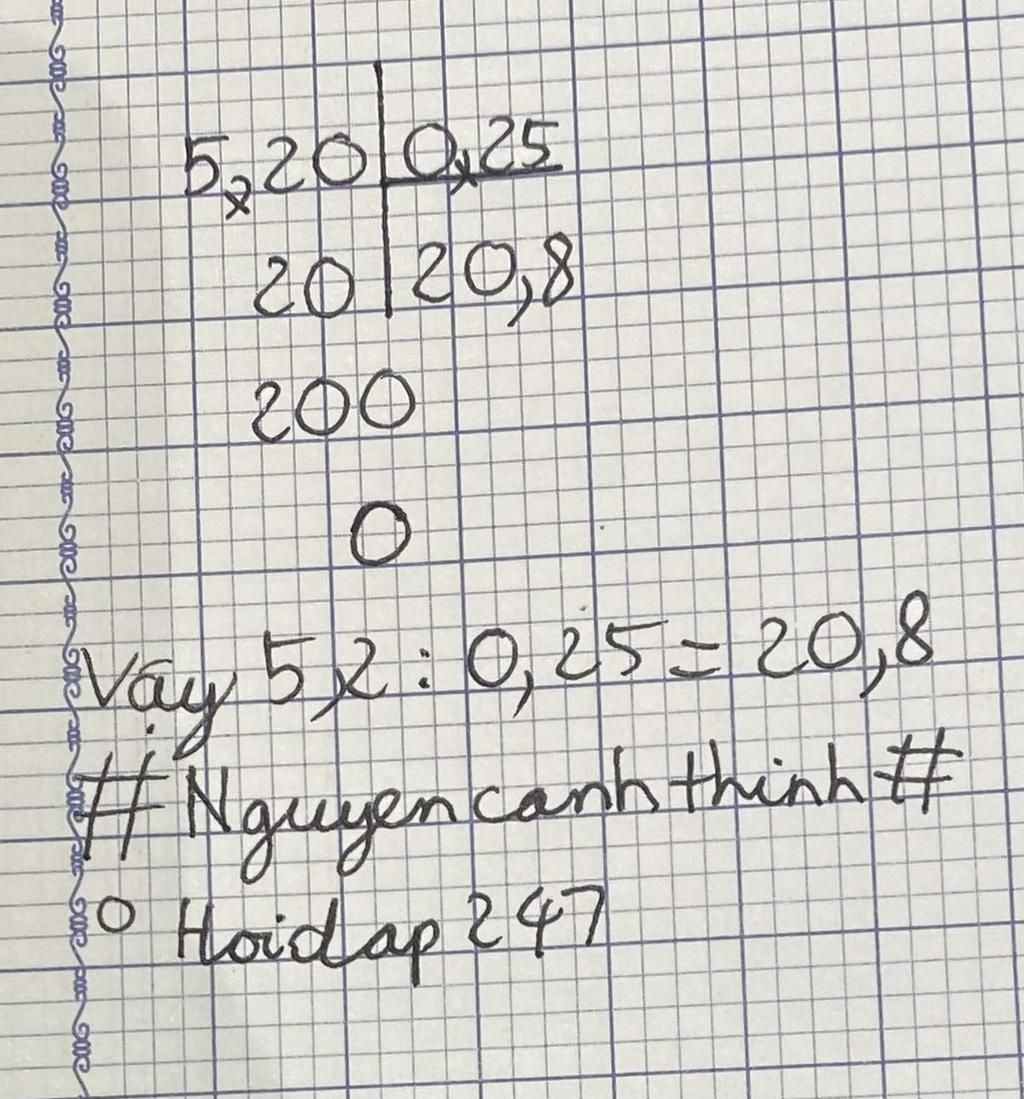 5,20 0,25
20 20,8
200
0
Vậy 5,2 : 0,25 = 20,8
# Nguyen canh thinh #
o Hoidap 247